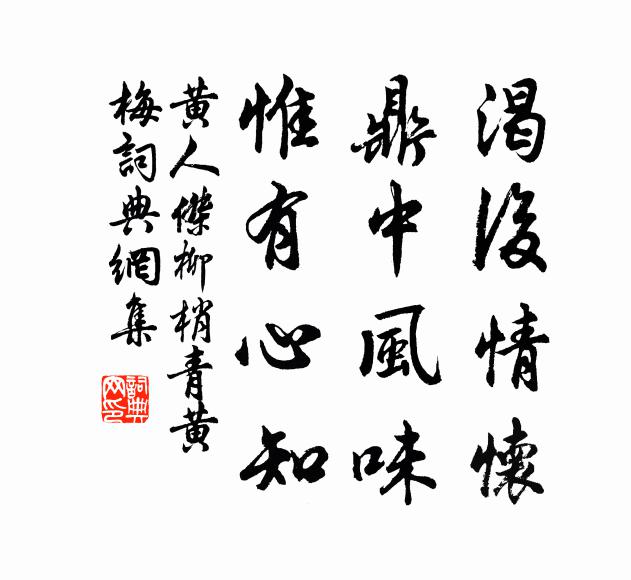 渴後情懷
鼎中風味
惟有心知
黄人傑柳梢青黄
梅詞典網集
詞典
网印